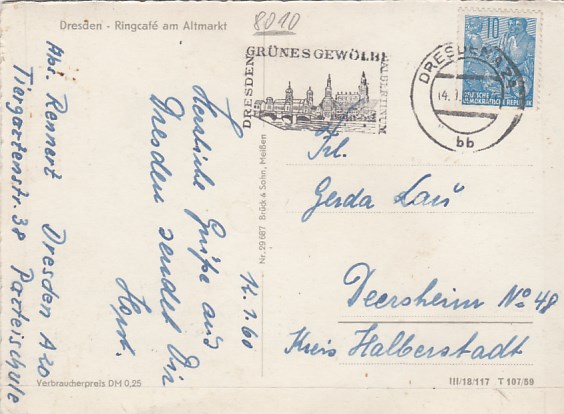 Dresden - Ringcafé am Altmarkt
8010
DRESDEN
GRÜNES GEWÖLBE
ALBERTINUM
DRESDEN
14.1.
bb
10
DEUTSCHE
DEMOKRATISCHE REPUBLIK
Abs. Rennert Dresden A 20
Tiergartenstr. 38 Parteischule
12.1.60
Herzliche Grüße aus
Dresden sendet Dir
Horst.
Nr. 29687 Brück & Sohn, Meißen
Frl.
Gerda Lau
Deersheim No 48
Kreis Halberstadt
Verbraucherpreis DM 0,25
III/18/117 T 107/59